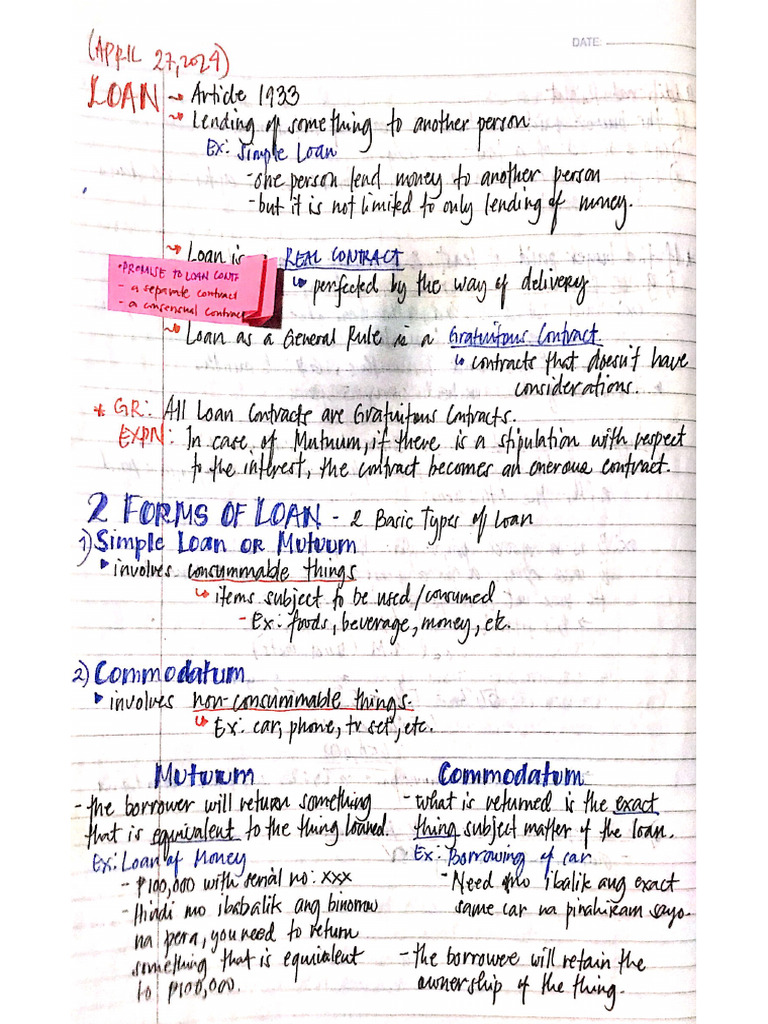 (APRIL 27, 2024)
DATE:
LOAN → Article 1933
→ Lending of something to another person
Ex: Simple Loan
- one person lend money to another person
- but it is not limited to only lending of money.
→ Loan is REAL CONTRACT
↳ perfected by the way of delivery
• PROMISE TO LOAN CONT
- a separate contract
- a consensual contract
→ Loan as a General Rule is a Gratuitous Contract
↳ contracts that doesn't have
considerations.
* GR: All Loan Contracts are Gratuitous Contracts.
EXPN: In case of Mutuum, if there is a stipulation with respect
to the interest, the contract becomes an onerous contract.
2 FORMS OF LOAN - 2 Basic Types of Loan
1) Simple Loan or Mutuum
▸ involves consummable things
↳ items subject to be used/consumed
- Ex: foods, beverage, money, etc.
2) Commodatum
▸ involves non-consummable things.
↳ Ex: car, phone, tv set, etc.
Mutuum
- the borrower will return something
that is equivalent to the thing loaned.
Ex: Loan of Money
- ₱100,000 with serial no: xxx
- Hindi mo ibabalik ang binorrow
na pera, you need to return
something that is equivalent
to ₱100,000.
Commodatum
- what is returned is the exact
thing subject matter of the loan.
Ex: Borrowing of car
- Need mo ibalik ang exact
same car na pinahiram sayo.
- the borrowee will retain the
ownership of the thing.